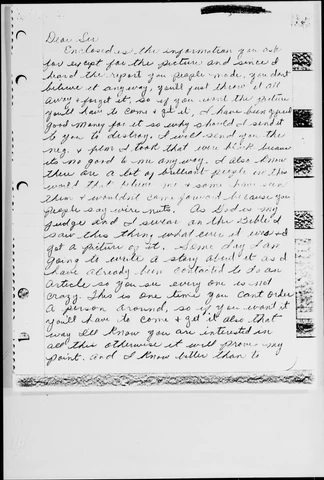 Dear Sir
Enclosed is the information you ask
for except for the picture and since I
heard the report you people made, you don't
believe it anyway, you'll just throw it all
away & forget it, so if you want the picture
you'll have to come & get it, I have been offered
good money for it so why should I send it
to you to destroy. I will send you the
neg. & film I took that were blank because
its no good to me anyway. I also know
there are a lot of brilliant people in this
world that believe me & some have seen
them & wouldn't come forward because you
people say we're nuts. As God is my
Judge and I swear on the Bible I
saw this thing what ever it was & I
got a picture of it. Some day I am
going to write a story about it as I
have already been contacted to do an
Article so you see every one is not
crazy. This is one time you cant order
a person around, so if you want it
you'll have to come & get it also that
way I'll know you are interested in
all this otherwise it will prove my
point. And I know better than to